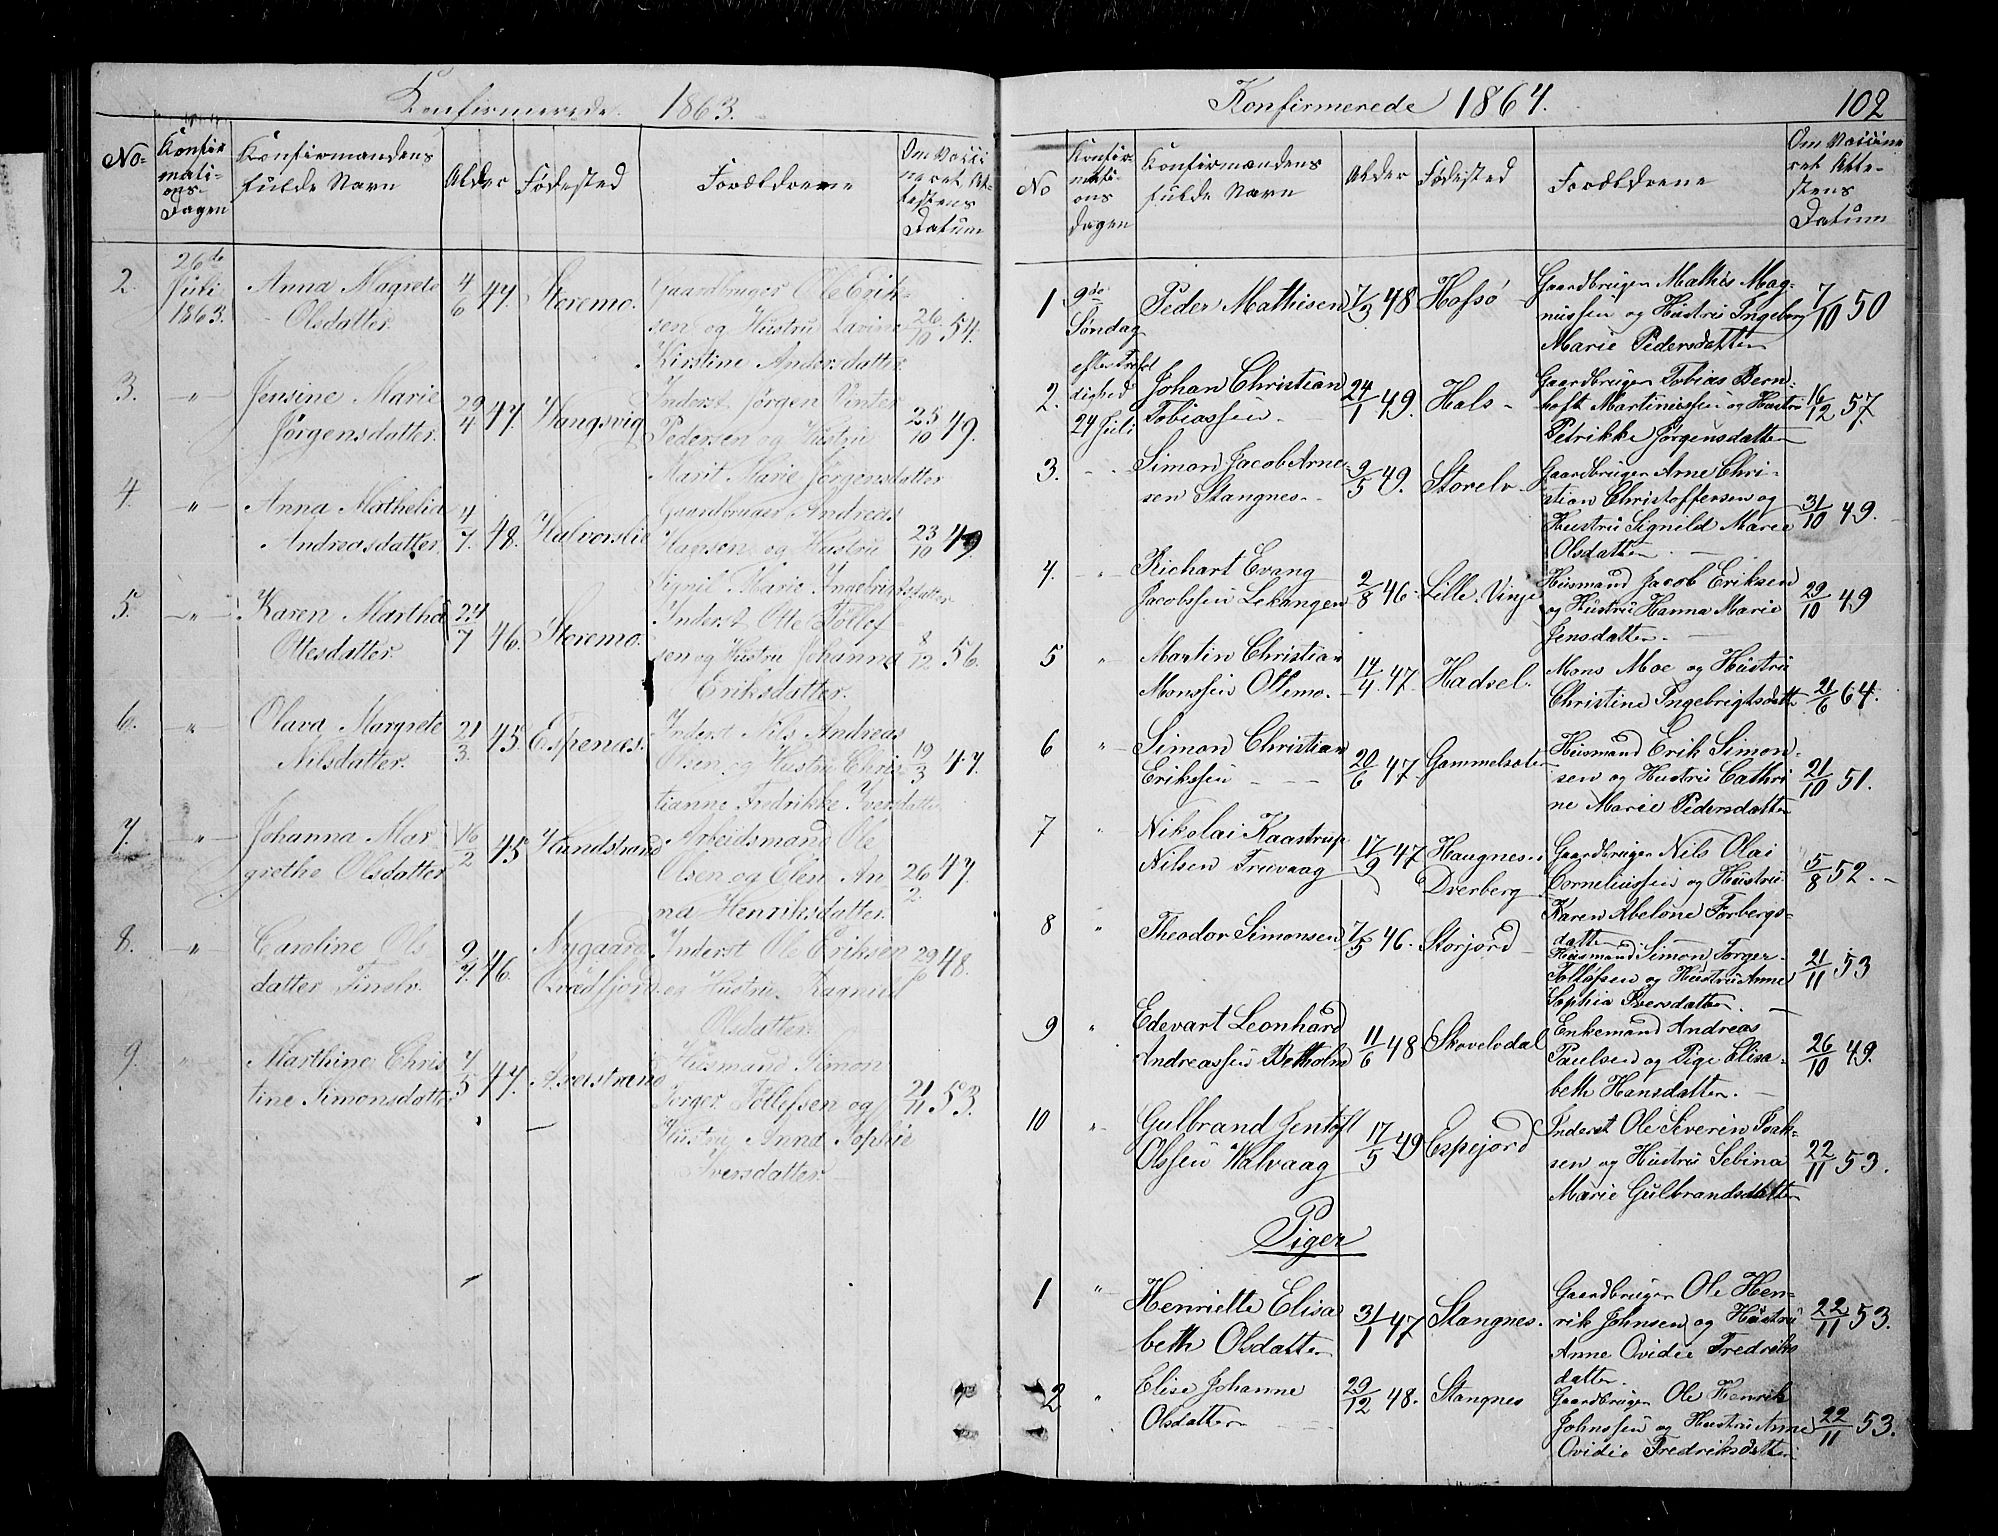 Konfirmerede 1863.
No.
Konfir
mati-
ons-
Dagen
Konfirmandens
fulde Navn
Alder
Fødested
Forældrene
Om Vacci
neret At-
testens
Datum
2.
26de
Juli
1863.
Anna Magrete
Olsdatter.
4/6 47.
Storemo.
Gaardbruger Ole Erik-
sen og Hustru Lavine
Kirstine Andersdatter
26/10 54.
3.
-"-
Jensine Marie
Jørgensdatter.
29/4 47
Kangsvig
Inderst Jørgen Vinter
Pedersen og Hustru
Marit Marie Jørgensdatter
25/10 49.
4.
-"-
Anna Mathelia
Andreasdatter
4/7. 48.
Halvorslie
Gaardbruger Andreas
Hansen og Hustru
Signil Marie Ingebrigtsdatter
23/10 49
5.
-"-
Karen Martha
Ottesdatter.
24/7 46.
Storemo.
Inderst Otte Tollef-
sen og Hustru Johanna
Eriksdatter.
8/12 56.
6.
"
Olava Margrete
Nilsdatter.
21/3. 45.
Espenæs.
Inderst Nils Andreas
Olsen og Hustru Chris-
tianne Fredrikke Iversdatter
19/3 47.
7.
-"-
Johanna Mar-
grethe Olsdatter
16/2 45
Kundstrand
Arbeidsmand Ole
Olsen og Elen An-
na Henriksdatter.
26/2. 47
8.
-"-
Caroline Ols
datter Finslv.
9/4. 46.
Nygaard
Kvædfjord.
Inderst Ole Eriksen
og Hustru Ragnild
Olsdatter.
29/10 48.
9.
"
Marthine Chris
tine Simonsdatter
4/5 47.
Axelstrand
Husmand Simon
Torger Tollefsen og
Hustru Anna Sophie
Iversdatter.
21/11 53.
Konfirmerede 1864.
102
No
Konfir-
mati-
ons
dagen
Konfirmandens
fulde Navn
Alder
Fødested
Forældrene
Om Vaccine
ret Atte-
stens
Datum
1
9de
Søndag
efter Trefol
dighed
24 Juli
Peder Mathisen
7/3 48
Hofsø
Gaardbruger Mathis Mag-
nussen og Hustru Ingeborg
Marie Pedersdatter
7/10 50
2.
Johan Christian
Tobiassen.
24/1 49.
Hals-
Gaardbruger Tobias Bern-
hoft Martinussen og Hustru
Petrikke Jørgensdatter
16/12 57.
3.
Simon Jacob Arne-
sen Stangnes.
9/5 49.
Storelv.
Gaardbruger Arne Chri-
stian Christoffersen og
Hustru Signild Marie
Olsdatter.
31/10 49.
4.
"
Richart Evang
Jacobssen Lekangen
2/8 46
Lille Vinje
Husmand Jacob Eriksen
og Hustru Hanna Marie
Jensdatter.
29/10 49
5
"
Martin Christian
Monssen Ottemo.
14/4. 47.
Hadsel.
Mons Moe og Hustru
Christine Ingebrigtsdatt
21/6 64.
6
"
Simon Christian
Erikssen
20/6 47
Gammelsæter
Husmand Erik Simon-
sen og Hustru Cathri
ne Marie Pedersdatter
21/10 51.
7
"
Nikolai Kaastrup
Nilsen Truvaag
17/9 47
Haugnes
Dverberg
Gaardbruger Nils Olai
Corneliussen og Hustru
Karen Abelone Torbergs-
datter
5/8 52.
8
"
Theodor Simonsen
7/5 46.
Storjord
Husmand Simon Torger
Tollefsen og Hustru Anne
Sophia Iversdatter.
21/11 53
9
"
Edevart Leonhard
Andreassen Botholm
11/6 48
Skovelvdal
Enkemand Andreas
Paulsen og Pige Elisa-
beth Hansdatter.
26/10 49.
10
"
Gulbrand Jentoft
Olssen Walvaag
17/5 49
Espejord
Inderst Ole Severin Isak-
sen og Hustru Sebina
Marie Gulbrandsdatter
22/11 53.
Piger
1
"
Henriette Elisa
beth Olsdatter
31/1 47
Stangnes.
Gaardbruger Ole Hen-
rik Johnsen og Hustru
Anne Ovidie Fredriks
datter.
22/11 53.
2
"
Elise Johanne
Olsdatter
29/12 48.
Stangnes
Gaardbruger Ole Henrik
Johnssen og Hustru Anne
Ovidie Fredriksdatter
22/11 53.